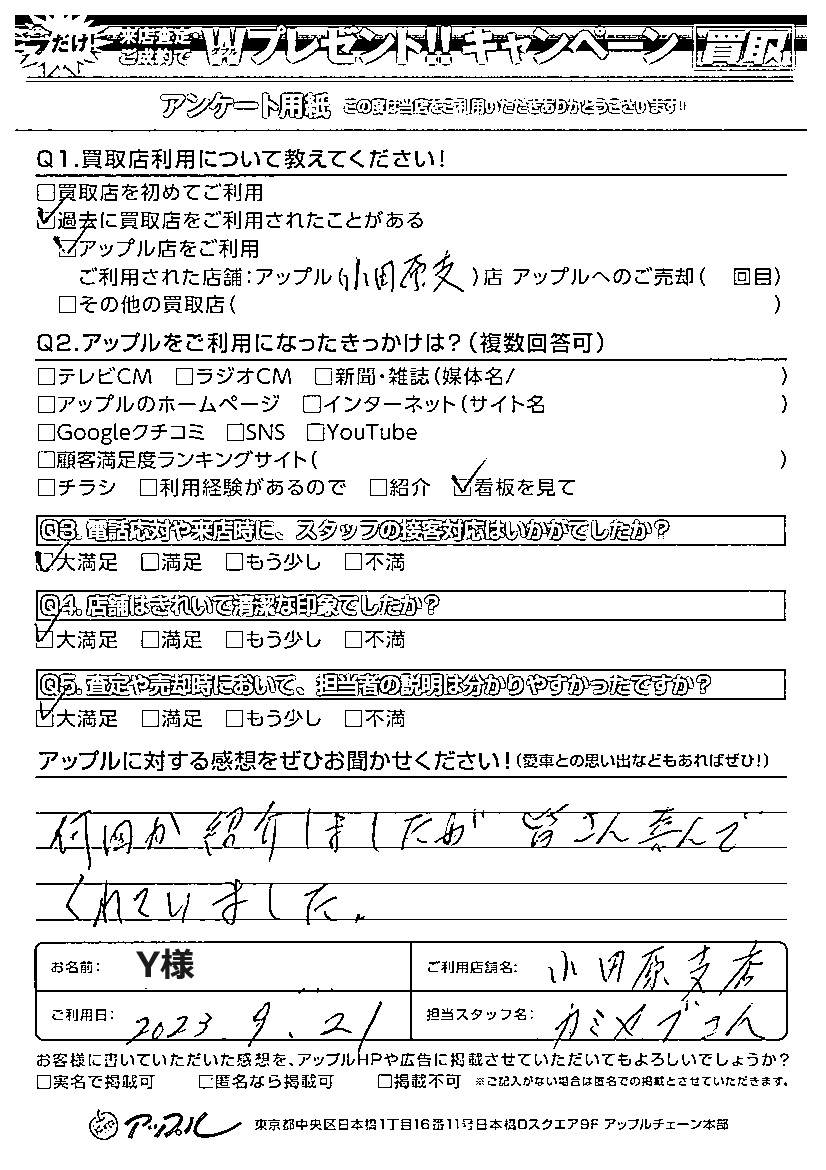 今だけ! 来店査定・ご成約で Wプレゼント!! キャンペーン 買取
アンケート用紙 この度は当店をご利用いただきありがとうございます!
Q1.買取店利用について教えてください!
□買取店を初めてご利用
☑過去に買取店をご利用されたことがある
☑アップル店をご利用
ご利用された店舗:アップル(小田原支)店 アップルへのご売却( 回目)
□その他の買取店( )
Q2.アップルをご利用になったきっかけは?(複数回答可)
□テレビCM □ラジオCM □新聞・雑誌(媒体名/ )
□アップルのホームページ □インターネット(サイト名 )
□Googleクチコミ □SNS □YouTube
□顧客満足度ランキングサイト( )
□チラシ □利用経験があるので □紹介 ☑看板を見て
Q3.電話応対や来店時に、スタッフの接客対応はいかがでしたか?
☑大満足 □満足 □もう少し □不満
Q4.店舗はきれいで清潔な印象でしたか?
☑大満足 □満足 □もう少し □不満
Q5.査定や売却時において、担当者の説明は分かりやすかったですか?
☑大満足 □満足 □もう少し □不満
アップルに対する感想をぜひお聞かせください!(愛車との思い出などもあればぜひ!)
何回か紹介しましたが皆さん喜んで
くれていました.
お名前: Y様 ご利用店舗名: 小田原支店
ご利用日: 2023.9.21 担当スタッフ名: カミメブさん
お客様に書いていただいた感想を、アップルHPや広告に掲載させていただいてもよろしいでしょうか?
□実名で掲載可 □匿名なら掲載可 □掲載不可 ※ご記入がない場合は匿名での掲載とさせていただきます。
アップル 東京都中央区日本橋1丁目16番11号日本橋Dスクエア9F アップルチェーン本部